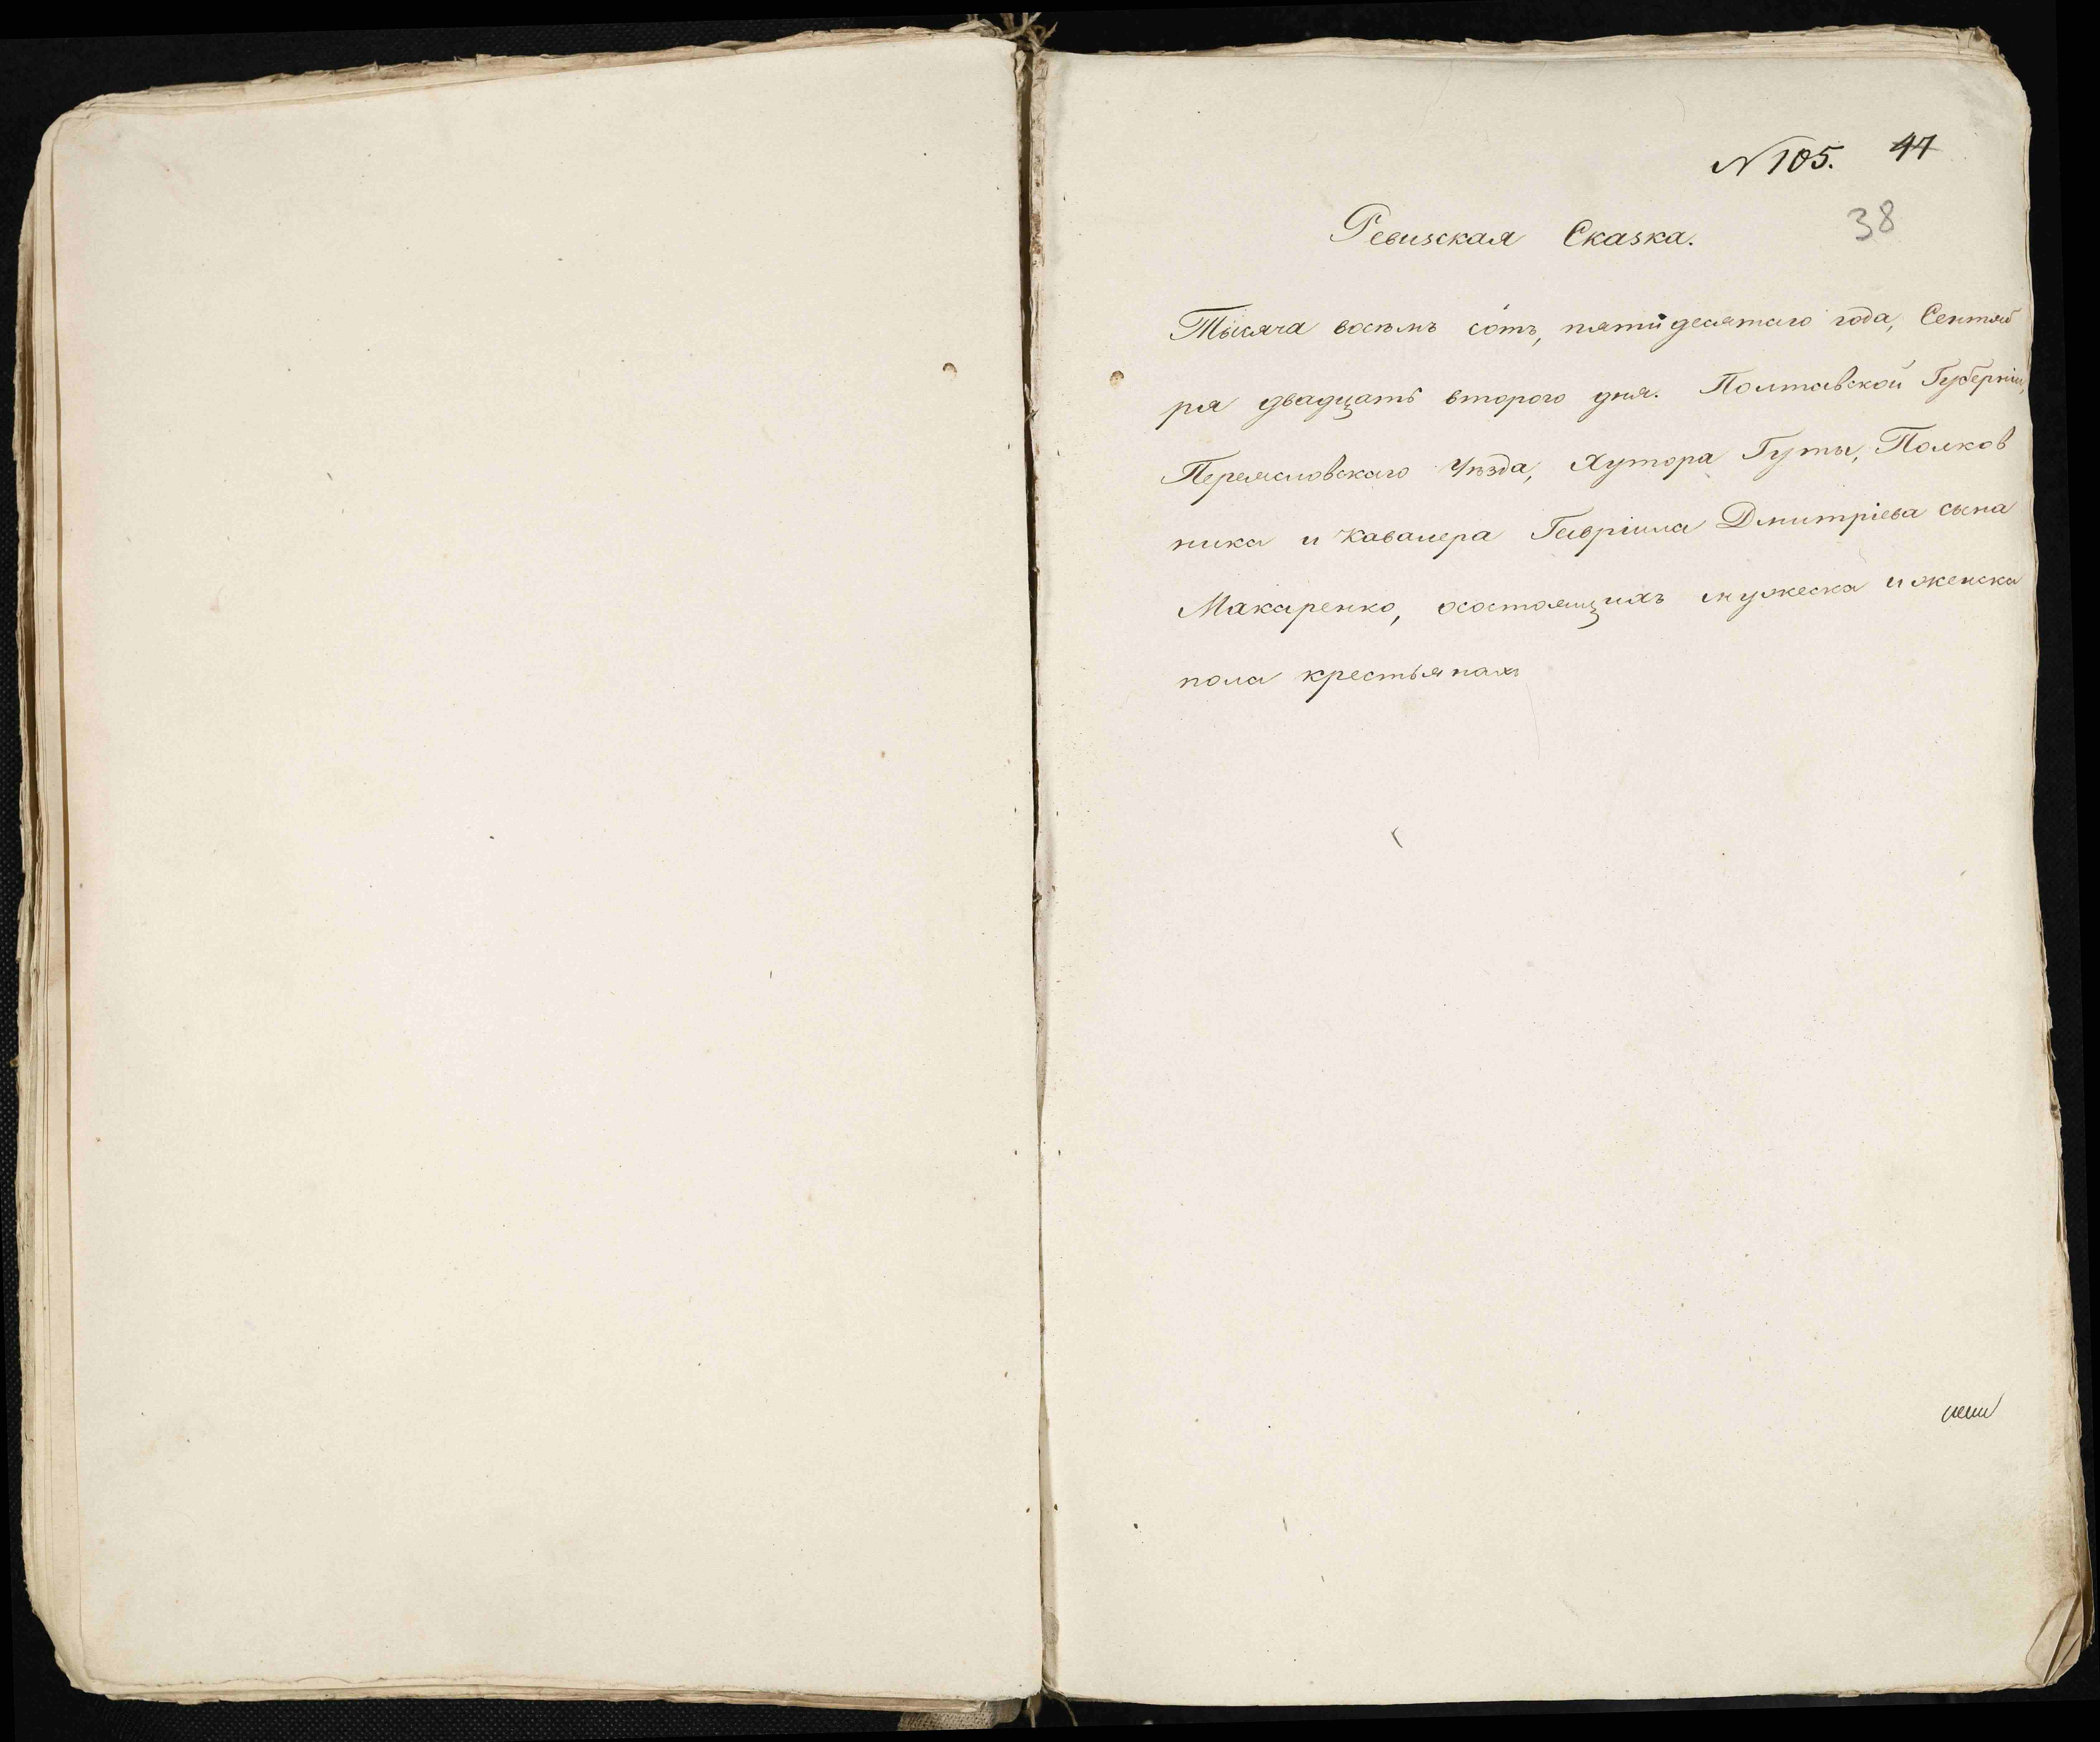 N 105. 47
38
Ревизская Сказка.
Тысяча восемь сотъ, пятидесятаго года, Сентяб
ря двадцать втораго дня. Полтавской Губерніи,
Переясловскаго Уѣзда, Хутора Гуты, Полков
ника и Кавалера Гавріила Дмитріева сына
Макаренко, осостоящихъ мужеска и женска
пола крестьянахъ